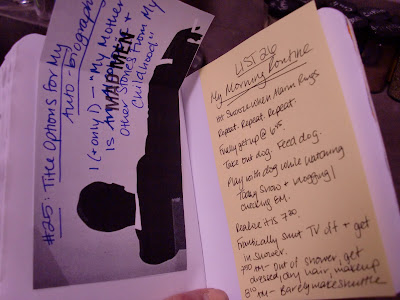 #25: Title Options for My
Auto-biography
1 (+ only!) - "My Mother
Is MAD MEN +
Other Stories From My
Childhood"
LIST 26
My Morning Routine
Hit Snooze when Alarm Rings
Repeat. Repeat. Repeat.
Finally get up @ 6:45.
Take out dog. Feed dog.
Play with dog while watching
Today Show + Vlogging/
checking EM.
Realize it is 7:30.
Frantically shut TV off + get
in shower.
7:50 AM- Out of shower, get
dressed, dry hair, makeup
8:10 AM- Barely make shuttle